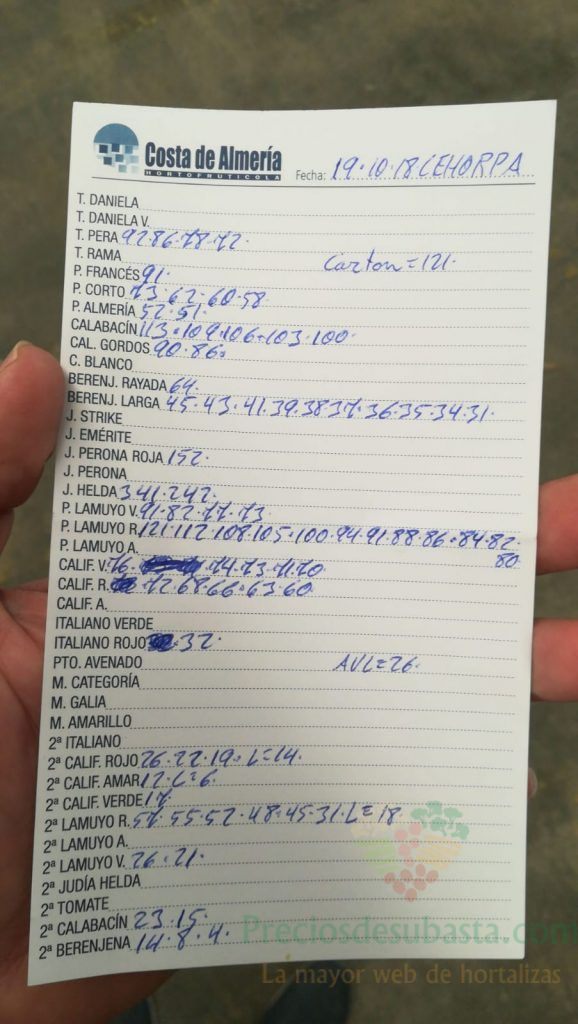 Costa de Almería
HORTOFRUTICOLA
Fecha: 19·10·18 CEHORPA
T. DANIELA
T. DANIELA V.
T. PERA 92·86·78·72·
T. RAMA Carton=121·
P. FRANCÉS 91·
P. CORTO 73·62·60·58·
P. ALMERÍA 52·51·
CALABACÍN 113·109·106·103·100·
CAL. GORDOS 90·86·
C. BLANCO
BERENJ. RAYADA 64·
BERENJ. LARGA 45·43·41·39·38·37·36·35·34·31·
J. STRIKE
J. EMÉRITE
J. PERONA ROJA 152·
J. PERONA
J. HELDA 341·242·
P. LAMUYO V. 91·82·77·73
P. LAMUYO R. 121·112·108·105·100·94·91·88·86·84·82·
80·
P. LAMUYO A.
CALIF. V. 76· 74·73·71·70
CALIF. R. 72·68·66·63·60·
CALIF. A.
ITALIANO VERDE
ITALIANO ROJO 32·
PTO. AVENADO AVL=26·
M. CATEGORÍA
M. GALIA
M. AMARILLO
2ª ITALIANO
2ª CALIF. ROJO 26·22·19·L=14·
2ª CALIF. AMAR 12·L=6·
2ª CALIF. VERDE 17·
2ª LAMUYO R. 57·55·52·48·45·31·L=18·
2ª LAMUYO A.
2ª LAMUYO V. 26·21·
2ª JUDÍA HELDA
2ª TOMATE
2ª CALABACÍN 23·15·
2ª BERENJENA 14·8·4·
Preciosdesubasta.com
La mayor web de hortalizas